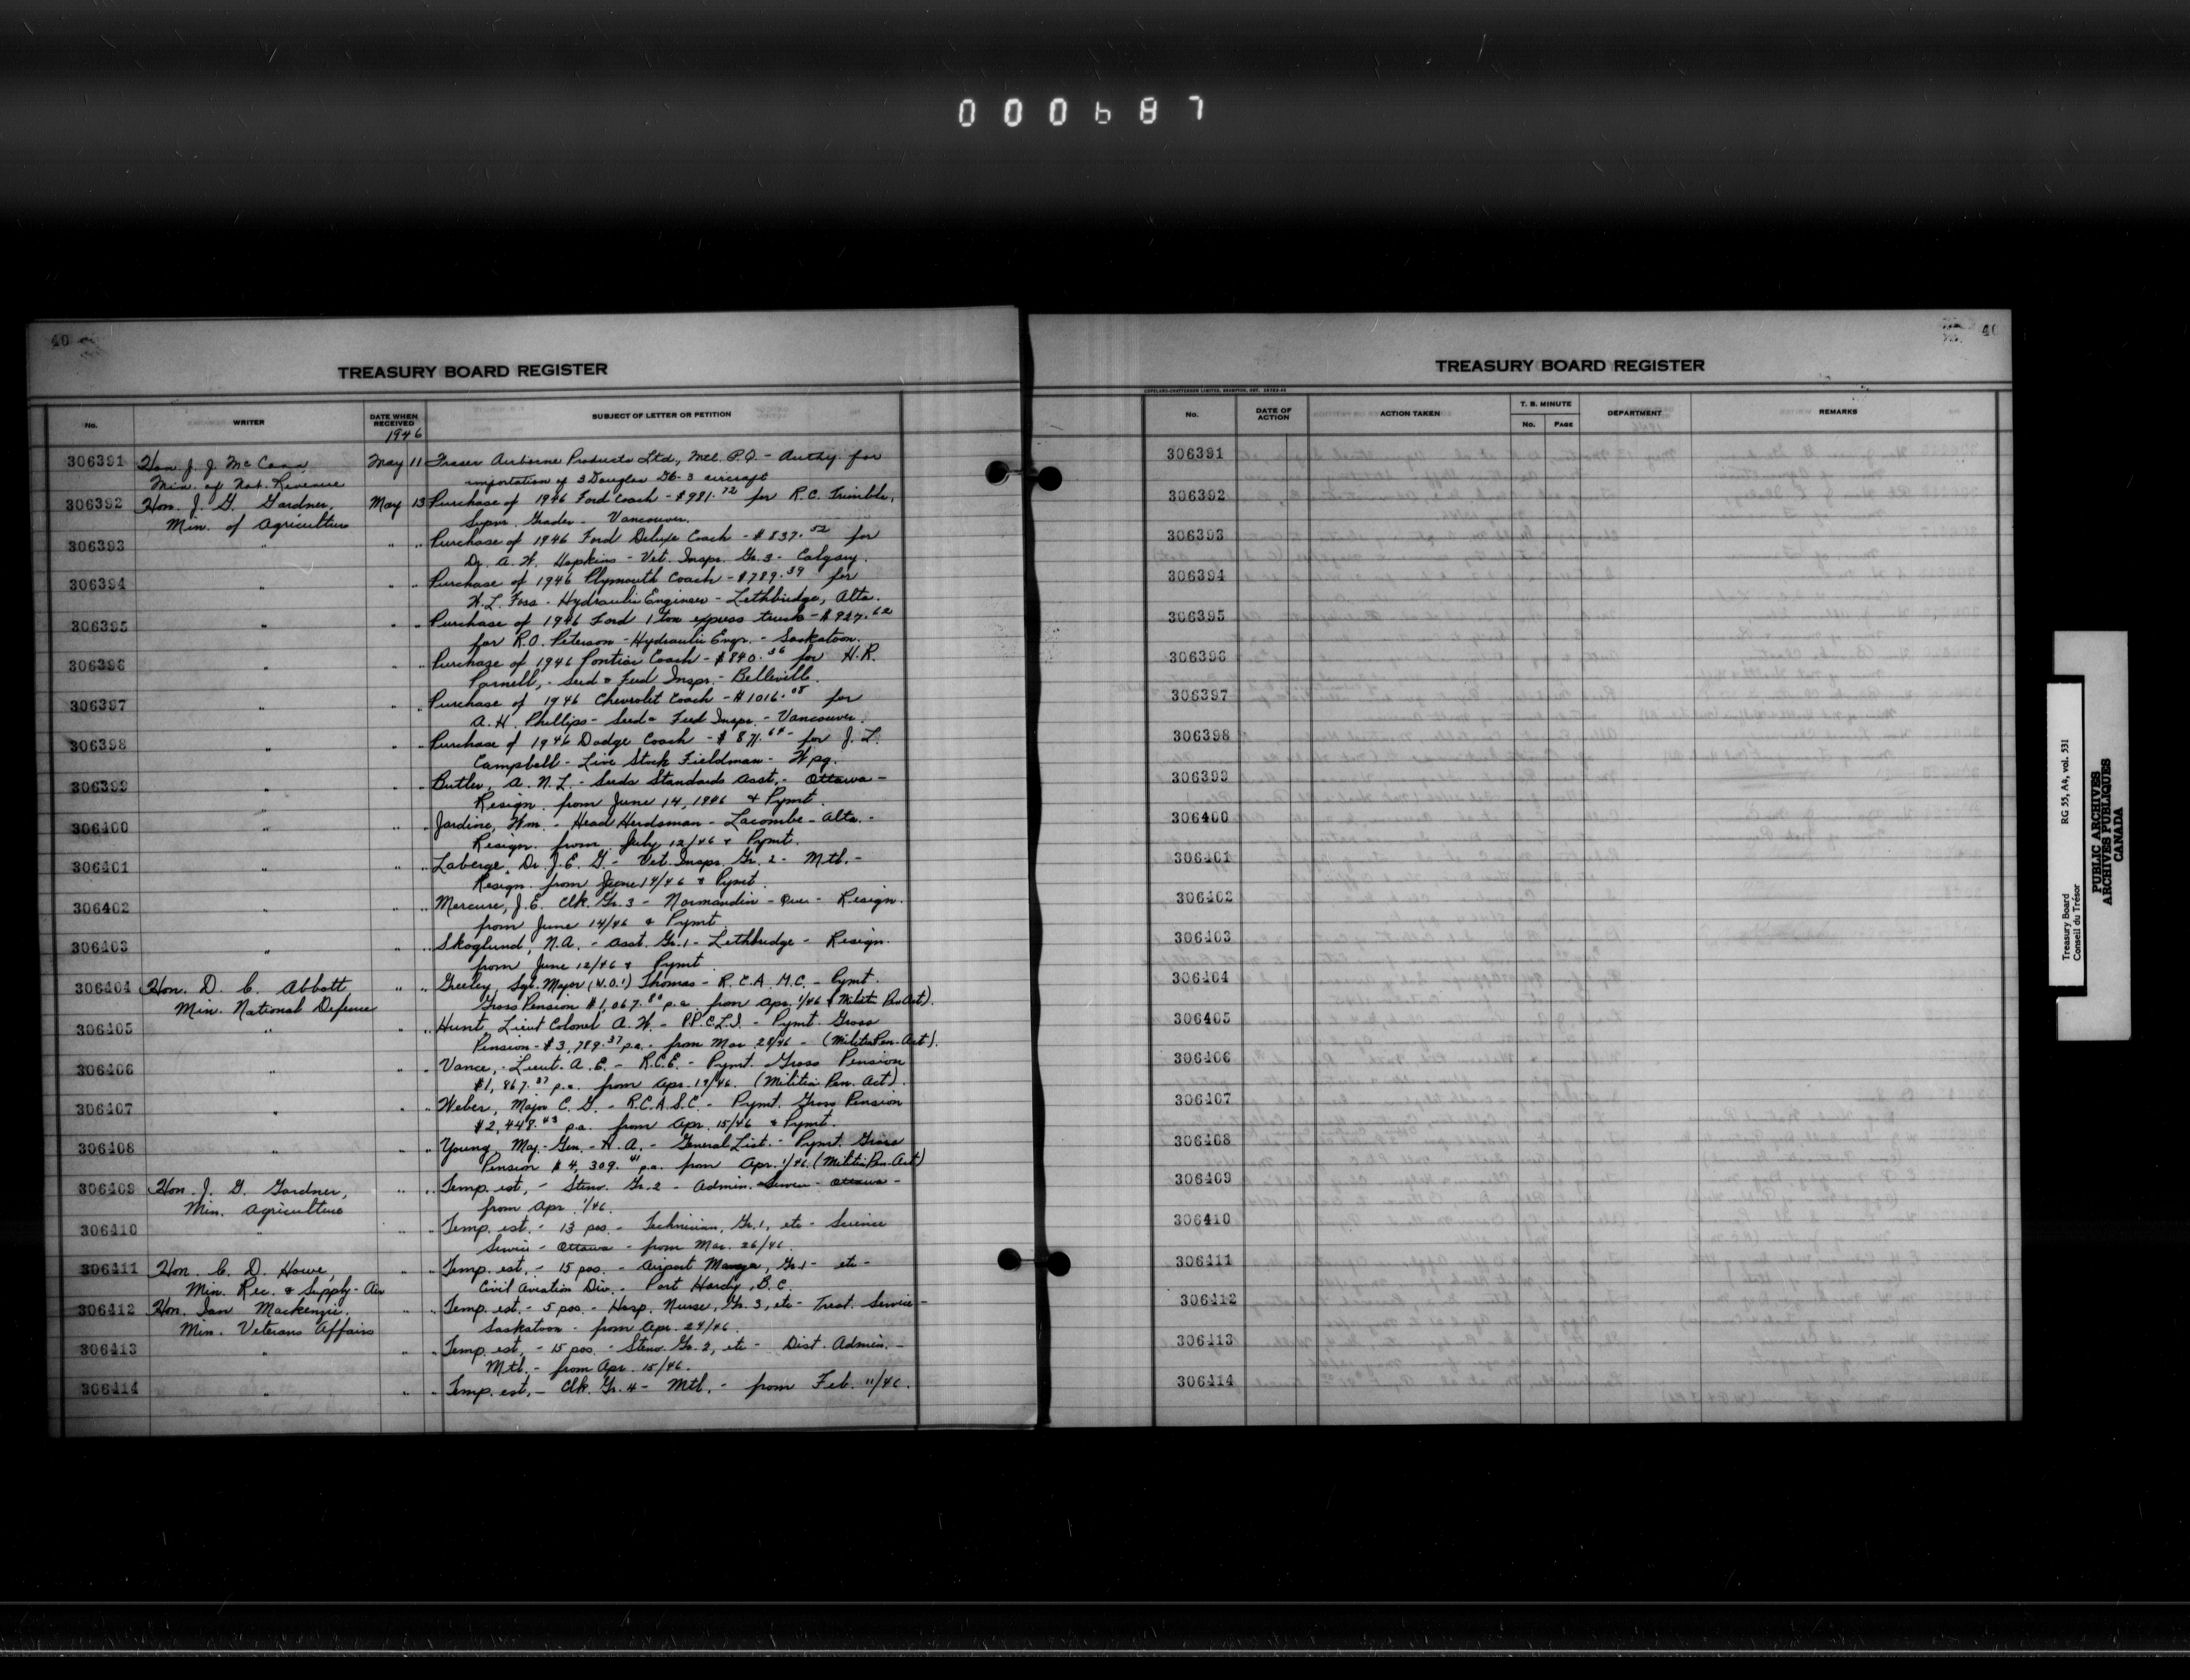 000687
40
TREASURY BOARD REGISTER
No. WRITER DATE WHEN RECEIVED SUBJECT OF LETTER OR PETITION
1946
306391 Hon J. J. McCann, May 11 Fraser Airborne Products Ltd., Mtl. P.Q. - Authy for
Min. of Nat. Revenue importation of 3 Douglas DC-3 aircraft
306392 Hon. J. G. Gardner, May 13 Purchase of 1946 Ford Coach - $981.72 for R.C. Trimble,
Min. of Agriculture Supvr. Grader - Vancouver.
306393 " " " Purchase of 1946 Ford Deluxe Coach - $837.52 for
Dr. A. W. Hopkins - Vet. Inspr. Gr. 3 - Calgary.
306394 " " " Purchase of 1946 Plymouth Coach - $789.39 for
W. L. Foss - Hydraulic Engineer - Lethbridge, Alta.
306395 " " " Purchase of 1946 Ford 1 ton express truck - $927.62
for R.O. Peterson - Hydraulic Engr. - Saskatoon.
306396 " " " Purchase of 1946 Pontiac Coach - $840.36 for H.R.
Parnell, - Seed & Feed Inspr. - Belleville.
306397 " " " Purchase of 1946 Chevrolet Coach - $1016.08 for
A. H. Phillips - Seed & Feed Inspr. - Vancouver.
306398 " " " Purchase of 1946 Dodge Coach - $871.64 - for J. L.
Campbell - Live Stock Fieldman - Wpg.
306399 " " " Butler, A. N. L. - Seeds Standards Asst. - Ottawa -
Resign. from June 14, 1946 & Pymt.
306400 " " " Jardine, Wm. - Head Herdsman - Lacombe - Alta. -
Resign. from July 12/46 & Pymt.
306401 " " " Laberge, Dr. J. E. G. - Vet. Inspr. Gr. 2 - Mtl. -
Resign. from June 14/46 & Pymt.
306402 " " " Mercure, J. E. Clk. Gr. 3 - Normandin - Que - Resign.
from June 14/46 & Pymt.
306403 " " " Skoglund, N.A. - Asst. Gr. 1 - Lethbridge - Resign.
from June 12/46 & Pymt.
306404 Hon. D. C. Abbott " " Greeley, Sgt. Major (W.O.1) Thomas - R.C.A.M.C. - Pymt.
Min. National Defence Gross Pension $1,067.80 p.a. from Apr. 1/46 (Militia Pen Act).
306405 " " " Hunt, Lieut Colonel A. W. - P.P.C.L.I. - Pymt. Gross
Pension - $3,789.37 p.a. - from Mar 28/46 - (Militia Pen. Act).
306406 " " " Vance, - Lieut. A. E. - R.C.E. - Pymt. Gross Pension
$1,867.37 p.a. from Apr. 19/46. (Militia Pen. Act).
306407 " " " Weber, Major C. G. - R.C.A.S.C. - Pymt. Gross Pension
$2,448.43 p.a. from Apr. 15/46 & Pymt.
306408 " " " Young Maj-Gen. - H. A. - General List. - Pymt. Gross
Pension $4,309.41 p.a. from Apr. 1/46. (Militia Pen. Act)
306409 Hon. J. G. Gardner, " " Temp. est. - Steno. Gr. 2 - Admin. Service - Ottawa -
Min. Agriculture from Apr. 1/46.
306410 " " " Temp. est. - 13 pos. - Technician, Gr. 1, etc - Science
Service - Ottawa - from Mar. 26/46.
306411 Hon. C. D. Howe, " " Temp. est. - 15 pos. - Airport Manager, Gr 1 - etc -
Min. Rec. & Supply - Air Civil Aviation Div. - Port Hardy, B.C.
306412 Hon. Ian Mackenzie. " " Temp. est. - 5 pos. - Hosp. Nurse, Gr. 3, etc - Treat. Service -
Min. Veterans Affairs Saskatoon - from Apr. 24/46.
306413 " " " Temp. est. - 15 pos. - Steno. Gr. 2, etc - Dist. Admin. -
Mtl. - from Apr. 15/46.
306414 " " " Temp. est. - Clk. Gr. 4 - Mtl. - from Feb. 11/46.
40
TREASURY BOARD REGISTER
No. DATE OF ACTION ACTION TAKEN T. B. MINUTE No. PAGE DEPARTMENT REMARKS
306391
306392
306393
306394
306395
306396
306397
306398
306399
306400
306401
306402
306403
306404
306405
306406
306407
306408
306409
306410
306411
306412
306413
306414
Treasury Board RG 55, A4, vol. 531
Conseil du Trésor
PUBLIC ARCHIVES
ARCHIVES PUBLIQUES
CANADA